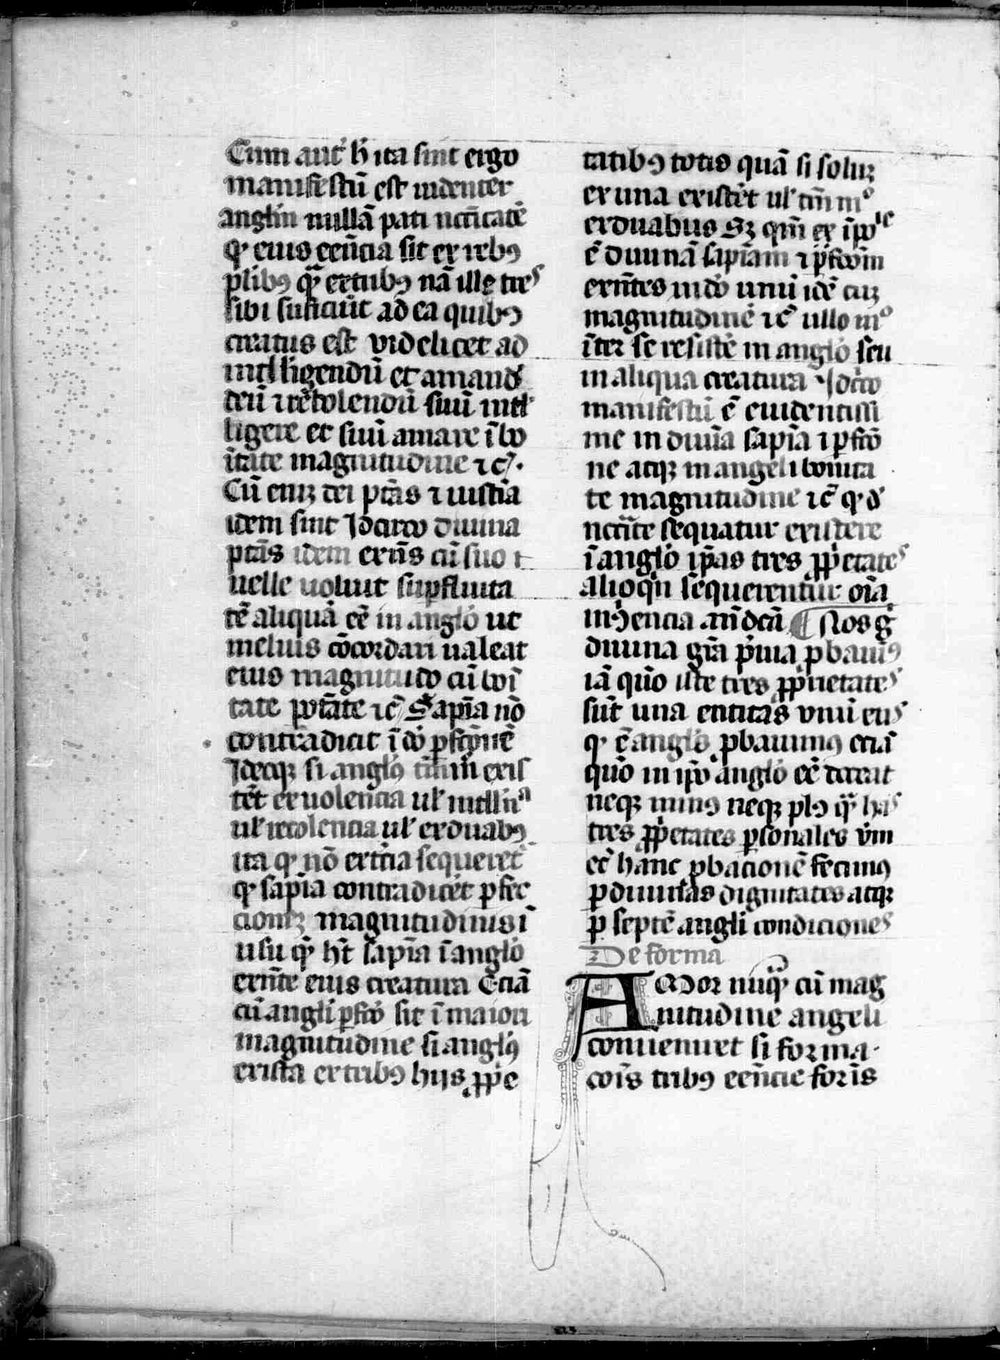 Cum aut̉ h̄ ita sint ergo
manifestũ est uidenter
anglm̃ nullã pati nc̃citatẽ
ꝙ eius eẽncia sit ex rebꝰ
plibꝰ qᷓ extribꝰ nã ille tres
sibi sufficiũt ad ea quibꝰ
creatus est videlicet ad
intelligendũ et amandũ
deũ ⁊ recolendũ suũ intel
ligere et suũ amare ĩ bo
nitate magnitudine ⁊ cᷓ.
Cũ enĩ dei ptãs ⁊ iusticia
idem sint Idcirco diuina
ptãs idem exñs cũ suo
uelle uoluit supfluita
tẽ aliquã eẽ in anglo ut
melius cõcordari ualeat
eius magnitudo cũ boĩ
tate potãte ⁊cᷓ Sapĩa nõ
contradicit ĩ dõ pfcõnẽ
Ideoqꝫ si anglꝰ tm̃ exis
tẽt ex uolencia ul̉ intll̃ia
ul̉ recolencia ul̉ exduabꝰ
ita ꝙ nõ ex tercia sequeret̉
ꝙ sapĩa contradicẽt pfec
cionẽ magnitudinis ĩ
usu qᷓ hꝫ sapĩa ĩ anglo
exñte eius creatura Eciã
cũ angli pfcõ sit ĩ maiori
magnitudine si anglꝰ
exista ex tribꝰ hijs ꝓpe
tatibꝰ totis quã si soluꝫ
ex una existẽt ul̉ tm̃ mᵒ
exduabus Sꝫ qm̃ ex ĩpo
ẽ diuinã sapĩam ⁊ pfcõm
exñtes in dõ unũ idẽ cuꝫ
magnitudinẽ ⁊cᷓ ullo mᵒ
ĩter se resistẽ in anglo seu
in aliqua creatura Idcirco
manifestũ ẽ euidentissi
me in diuĩa sapĩa ⁊ pfcõ
ne atqꝫ in angeli bonita
te magnitudine ⁊cᷓ ꝙ de
nc̃citate sequatur existere
ĩ anglo ip̃as tres ꝓpetates
alioqn̉ sequerentur oĩa
incõueniencia an̉dcã ¶ Nos g̊
diuina gr̃a preuia ꝓbauimꝰ
iã quõ iste tres ꝓprietates
sũt una entitas vnũ ens
ꝙ ẽ anglꝰ ꝓbauimꝰ eciã
quõ in ipõ anglo eẽ debeãt
neqꝫ minꝰ neqꝫ plꝰ qᷓ has
tres ꝓpetates psonales vm̃
eẽ hanc ꝓbacionẽ fecimꝰ
p diuinas dignitates atqꝫ
p septẽ angli condiciones
De forma
AMor nũqᷓ cũ mag
nitudine angeli
conueniret si forma
cois tribꝰ eẽncie foris